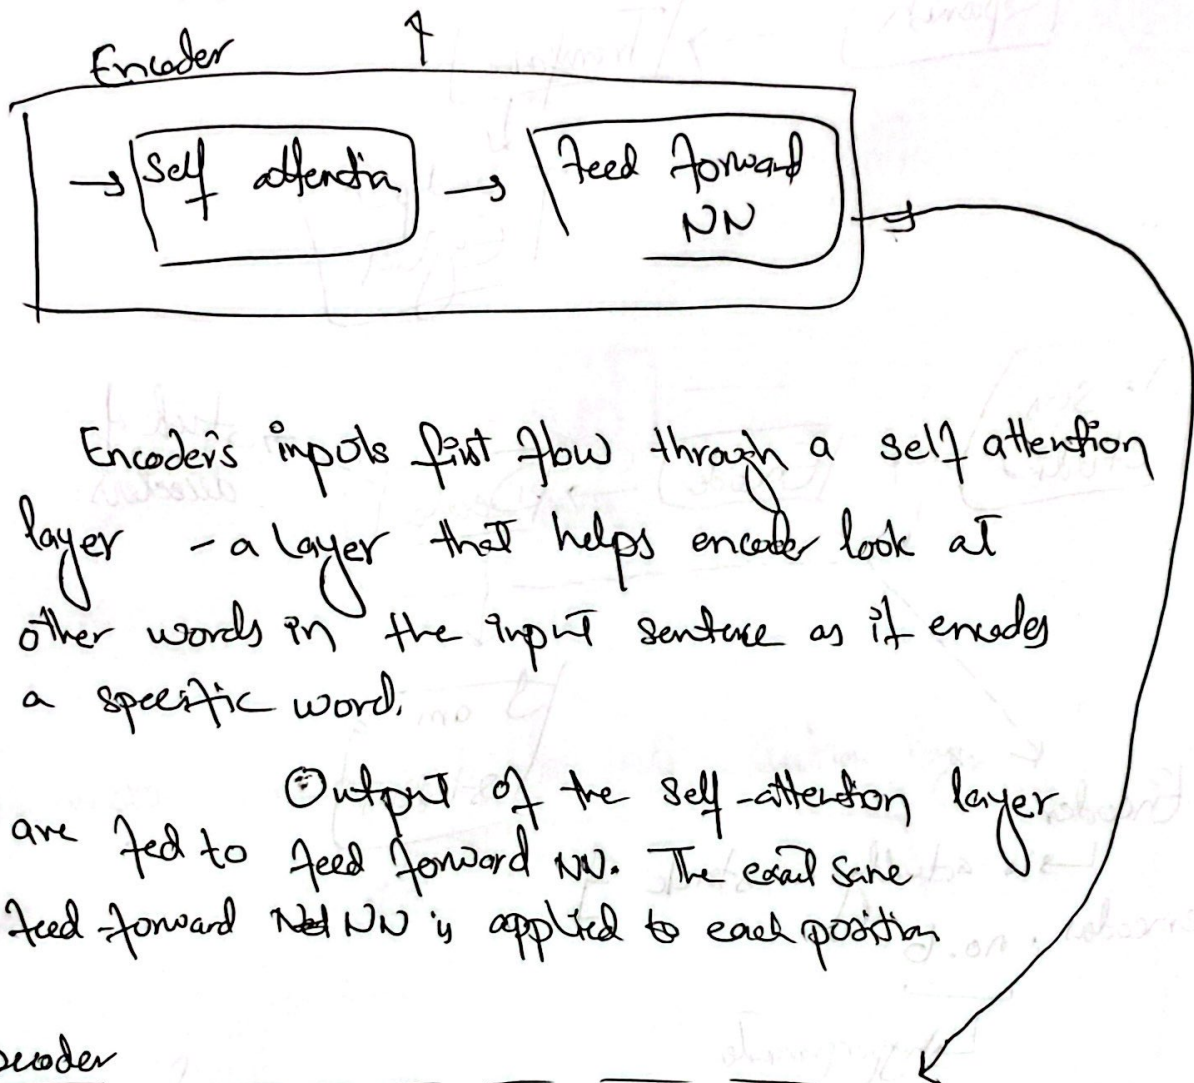 Encoder
Self attention
Feed forward
NN
Encoder's inputs first flow through a self attention
layer - a layer that helps encoder look at
other words in the input sentence as it encodes
a specific word.
Output of the self-attention layer
are fed to feed forward NN. The exact same
feed-forward NN is applied to each position
Decoder